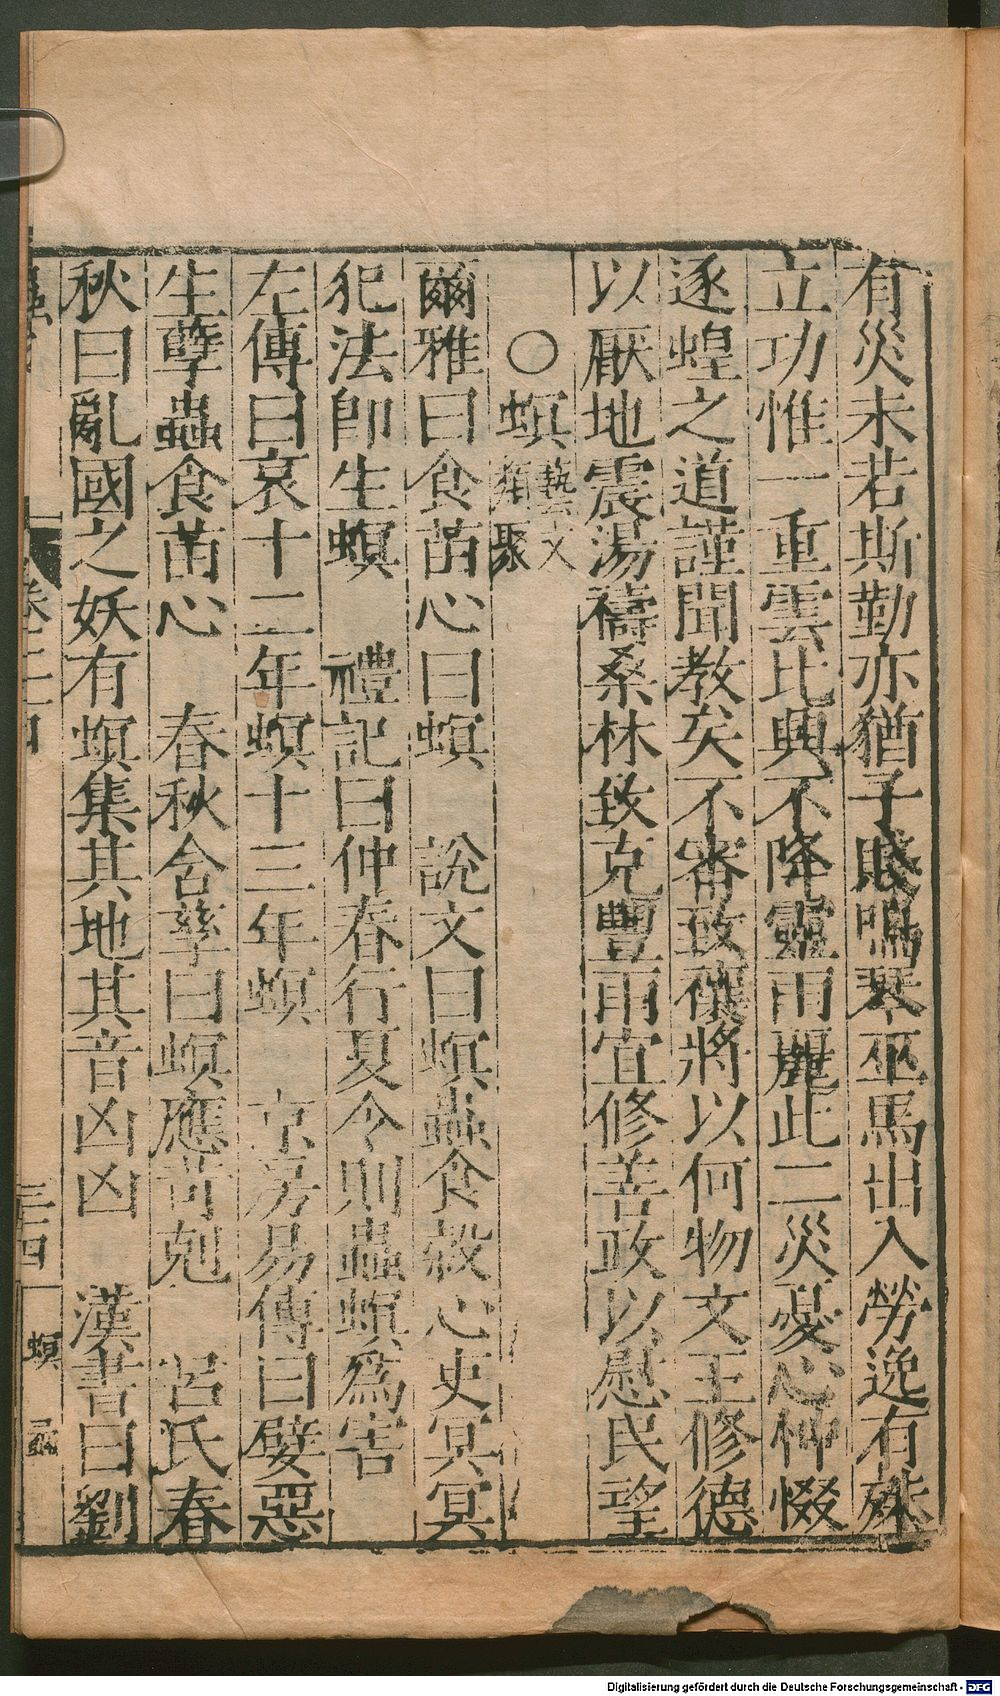 有災未若斯勤亦猶子賤鳴琴巫馬出入勞逸有殊
立功惟一重雲比興不降靈雨麗此二災憂心忡惙
逐蝗之道謹聞教矣不審致穰將以何物文王修德
以厭地震湯禱桑林致克豐雨宜修善政以慰民望
○螟藝文類聚
爾雅曰食苗心曰螟 說文曰螟蟲食穀心吏冥冥
犯法即生螟 禮記曰仲春行夏令則蟲螟爲害
左傳曰哀十二年螟十三年螟 京房易傳曰嬖惡
生孽蟲食苗心 春秋含孳曰螟應苛剋 呂氏春
秋曰亂國之妖有螟集其地其音凶凶 漢書曰劉
三四 螟
Digitalisierung gefördert durch die Deutsche Forschungsgemeinschaft - DFG